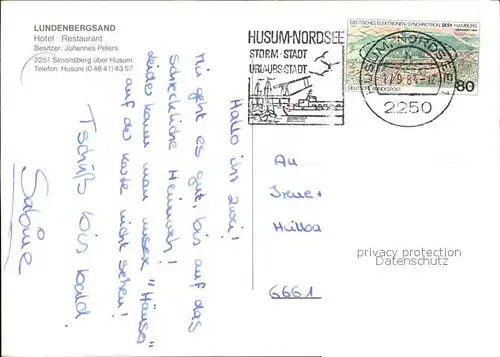 LUNDENBERGSAND
Hotel Restaurant
Besitzer: Johannes Peters
2251 Simonsberg über Husum
Telefon: Husum (0 48 41) 43 57
HUSUM·NORDSEE
STORM-STADT
URLAUBSSTADT
DEUTSCHES ELEKTRONEN-SYNCHROTRON DESY HAMBURG
DEUTSCHE BUNDESPOST
80
HUSUM, NORDSEE 1
2250
Hallo ihr zwei!
Mir geht es gut, bis auf das
schreckliche Heimweh!
Leider kann man unser "Häuse"
auf der Karte nicht sehen!
Tschüß bis bald
Sabine
An
Irene +
Huiba
6661
privacy protection
Datenschutz